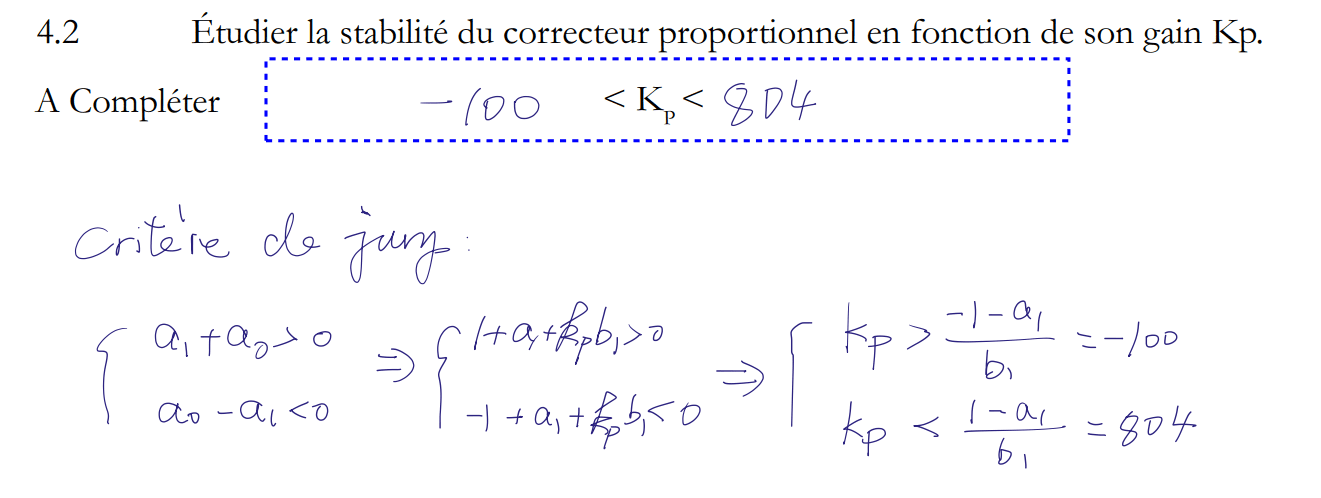 4.2 Étudier la stabilité du correcteur proportionnel en fonction de son gain Kp.
A Compléter -100 < Kp < 804
Critère de jury :
{ a1 + a0 > 0 ⇒ { 1 + a1 + kp b1 > 0 ⇒ { kp > (-1 - a1) / b1 = -100
a0 - a1 < 0 -1 + a1 + kp b1 < 0 kp < (1 - a1) / b1 = 804